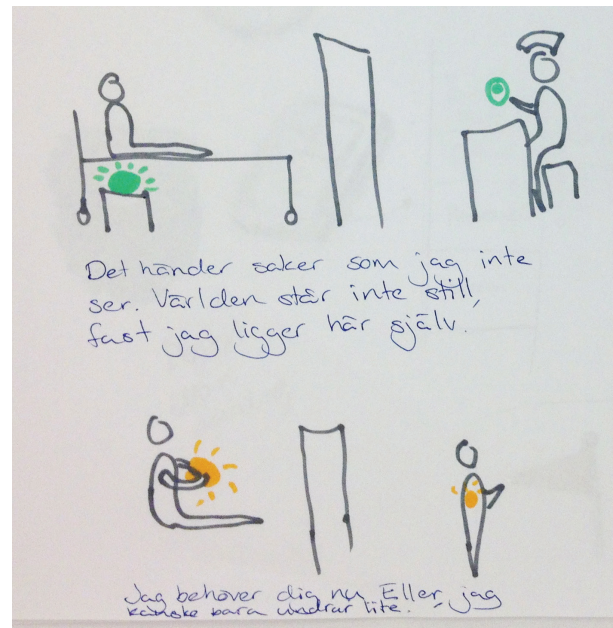 Det händer saker som jag inte
ser. Världen står inte still,
fast jag ligger här själv.
Jag behöver dig nu. Eller, jag
kanske bara undrar lite.